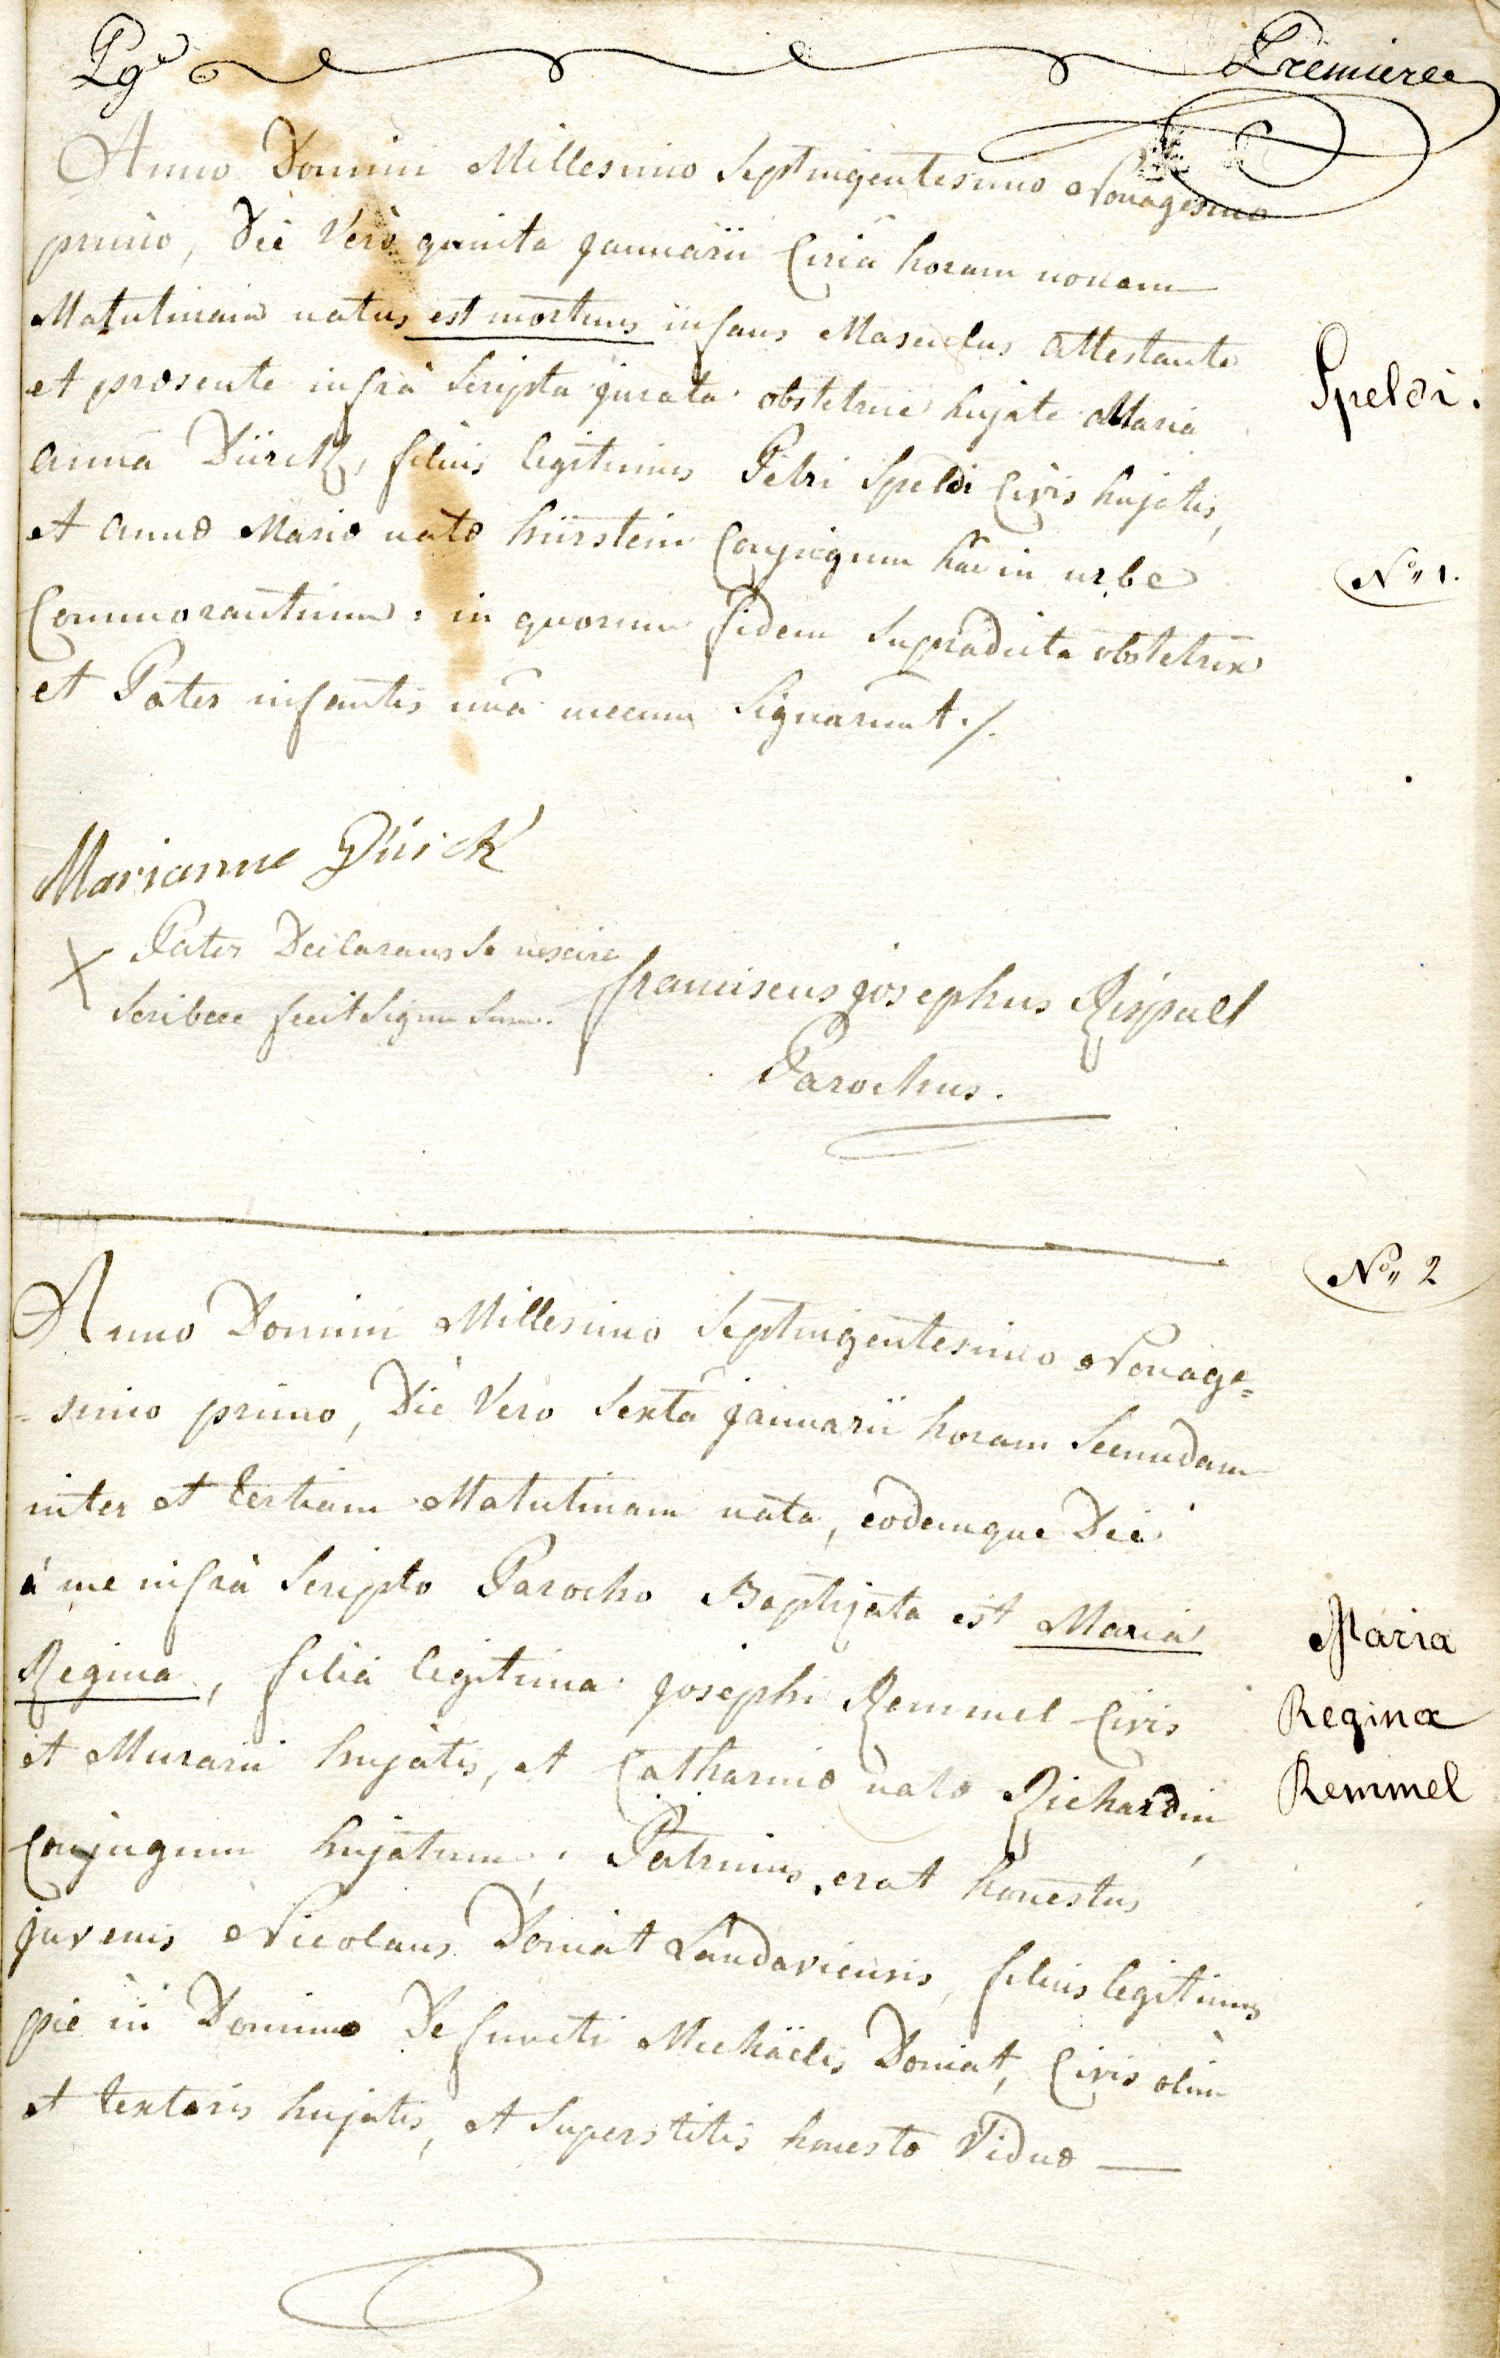 Pge Premiere
Anno Domini Millesimo Septingentesimo Nonagesimo
primo, Die Verò quinta Januarii Circà horam nonam
Matutinam natus est mortuus infans Masculus attestante
et præsente infrà Scripta jurata obstetrice hujate Mariâ
annâ Dürck, filius legitimus Petri Speldi Civis hujatis,
Speldi.
et annæ Mariæ natæ hürstein Conjugum hac in urbe
No,, 1.
Commorantium: in quorum fidem Supradicta obstetrix
et Pater infantis unà mecum Signarunt ./.
Marianne Dürck
X Pater Declarans se nescire
Scribere fecit Signum Suum.
franciscus josephus
Parochus.
No,, 2
Anno Domini Millesimo Septingentesimo Nonage=
=simo primo, Die Verò Sextâ januarii horam Secundam
inter et tertiam Matutinam nata, eodemque Die
à me infrà Scripto Parocho Baptizata est Maria
Regina, filia legitima josephi Remmel Civis
et Murarii hujatis, et Catharinæ natæ Richardin,
Maria
Regina
Remmel
Conjugum hujatum; Patrinus erat honestus
juvenis Nicolaus Doniat Landaviensis, filius legitimus
pie in Domino Defuncti Michäelis Doniat, Civis olim
et textoris hujatis, et Superstitis honestæ Viduæ —